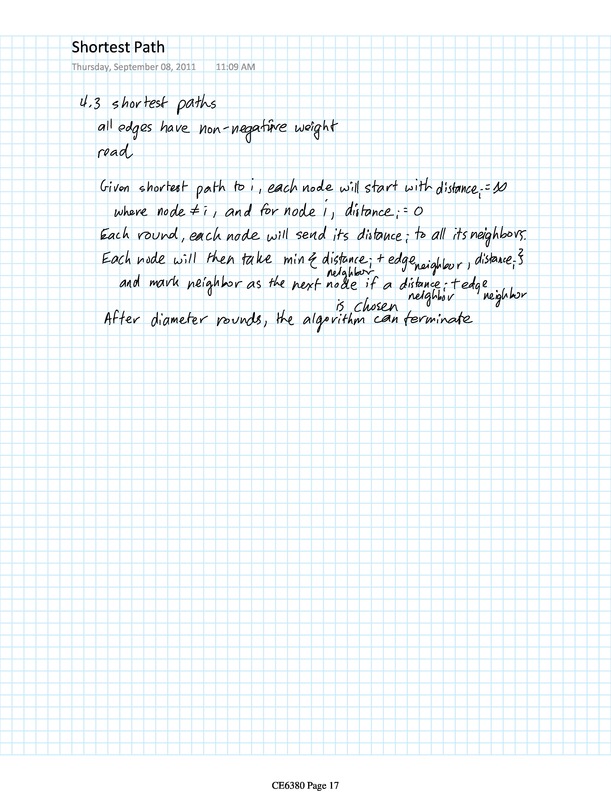 Shortest Path
Thursday, September 08, 2011 11:09 AM
4.3 shortest paths
all edges have non-negative weight
read
Given shortest path to i, each node will start with distanceᵢ = ∞
where node ≠ i, and for node i, distanceᵢ = 0
Each round, each node will send its distanceᵢ to all its neighbors.
Each node will then take min { distanceᵢ neighbor + edge neighbor, distanceᵢ }
and mark neighbor as the next node if a distanceᵢ neighbor + edge neighbor
is chosen
After diameter rounds, the algorithm can terminate
CE6380 Page 17